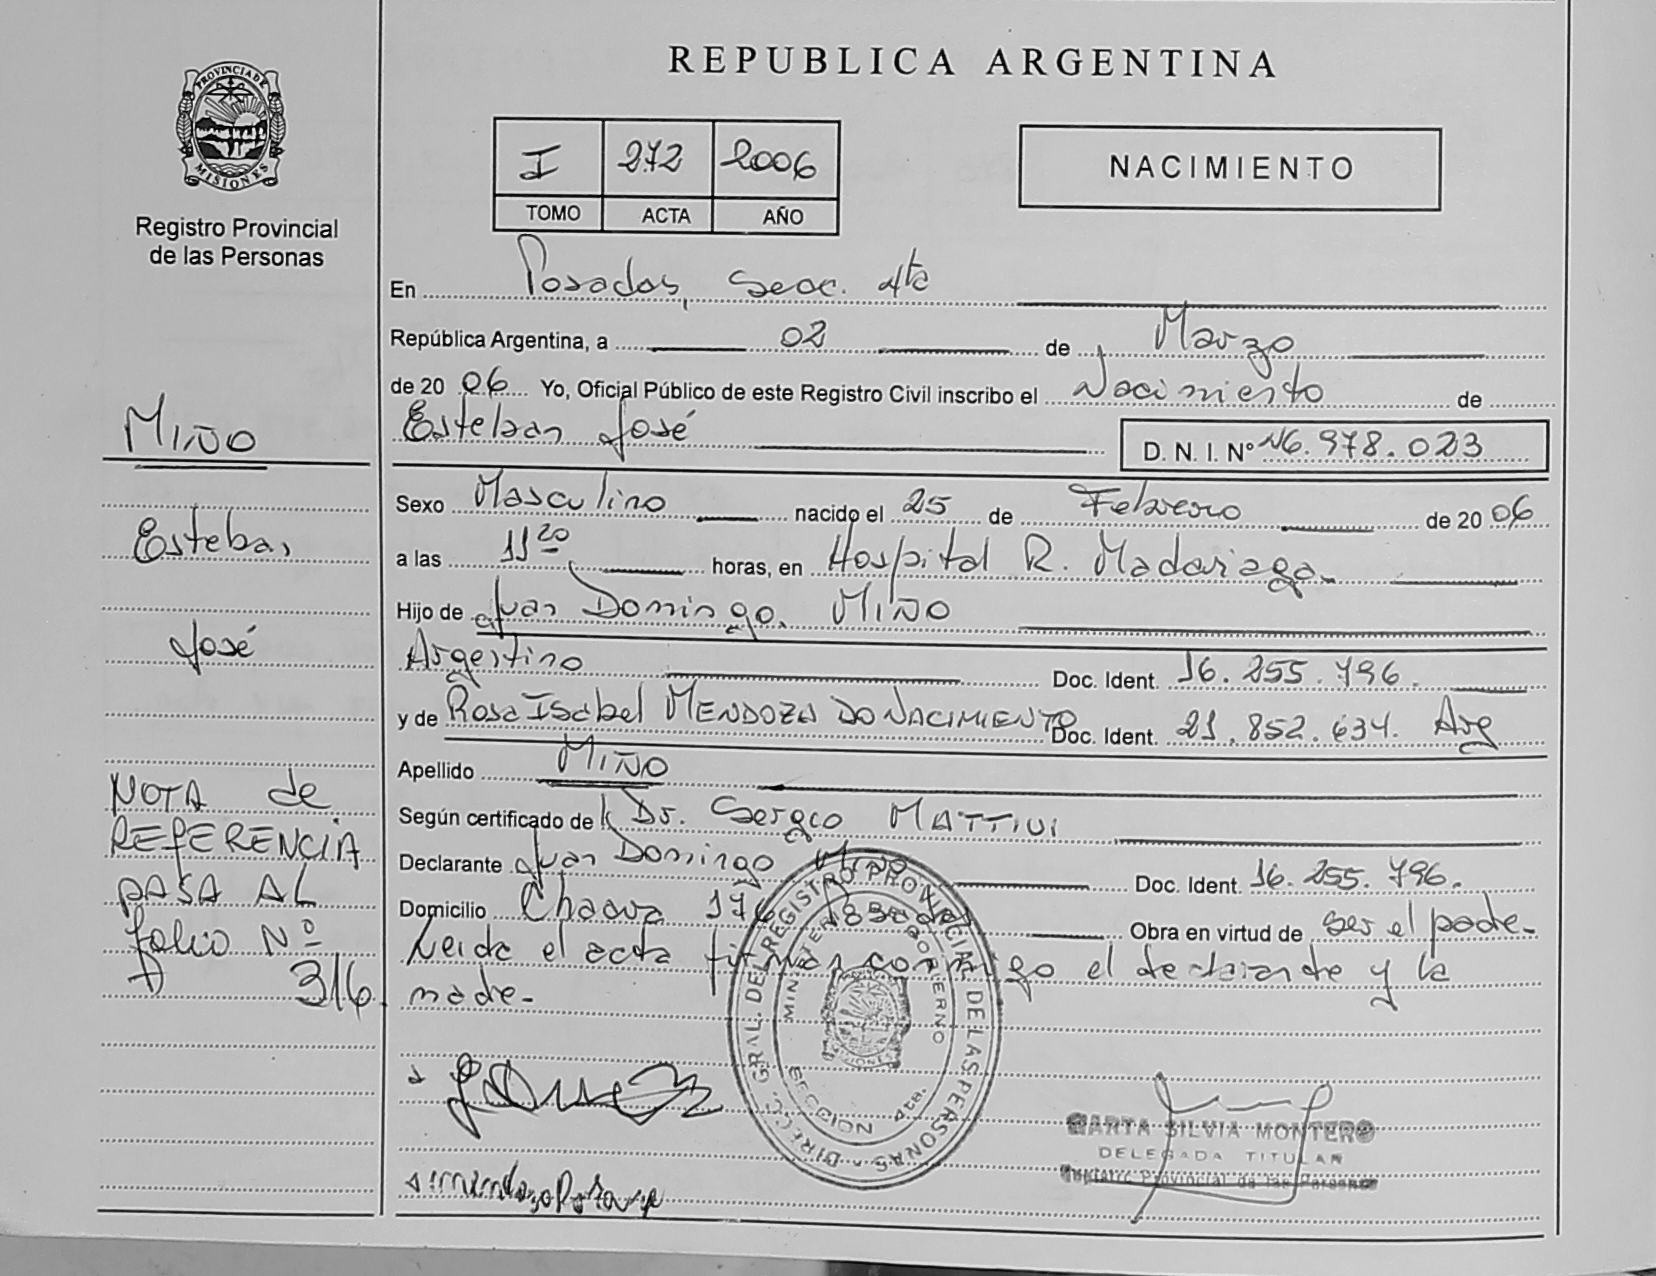 REPUBLICA ARGENTINA
PROVINCIA DE
MISIONES
Registro Provincial
de las Personas
I 272 2006
TOMO ACTA AÑO
NACIMIENTO
En Posadas, Secc. 4ta
República Argentina, a 02 de Marzo
de 20 06 Yo, Oficial Público de este Registro Civil inscribo el Nacimiento de
Esteban José
D. N. I. Nº 46.978.023
Sexo Masculino nacido el 25 de Febrero de 20 06
a las 11 20 horas, en Hospital R. Madariaga
Hijo de Juan Domingo MIÑO
Argentino Doc. Ident. 16.255.796.
y de Rosa Isabel MENDOZA DO NACIMIENTO Doc. Ident. 21.852.634. Arg
Apellido MIÑO
Según certificado de Dr. Sergio
Declarante Juan Domingo Miño Doc. Ident. 16.255.796.
Domicilio 176 Obra en virtud de ser el padre-
Leida el acta firman conmigo el declarante y la
madre-
MIÑO
Esteban
José
NOTA de
REFERENCIA
PASA AL
folio Nº
316
DIRECC. GRAL. DEL REGISTRO PROVINCIAL DE LAS PERSONAS
MINISTERIO GOBIERNO
MISIONES
SECCION 4ta.
MARTA SILVIA MONTERO
DELEGADA TITULAR
Registro Provincial de las Personas